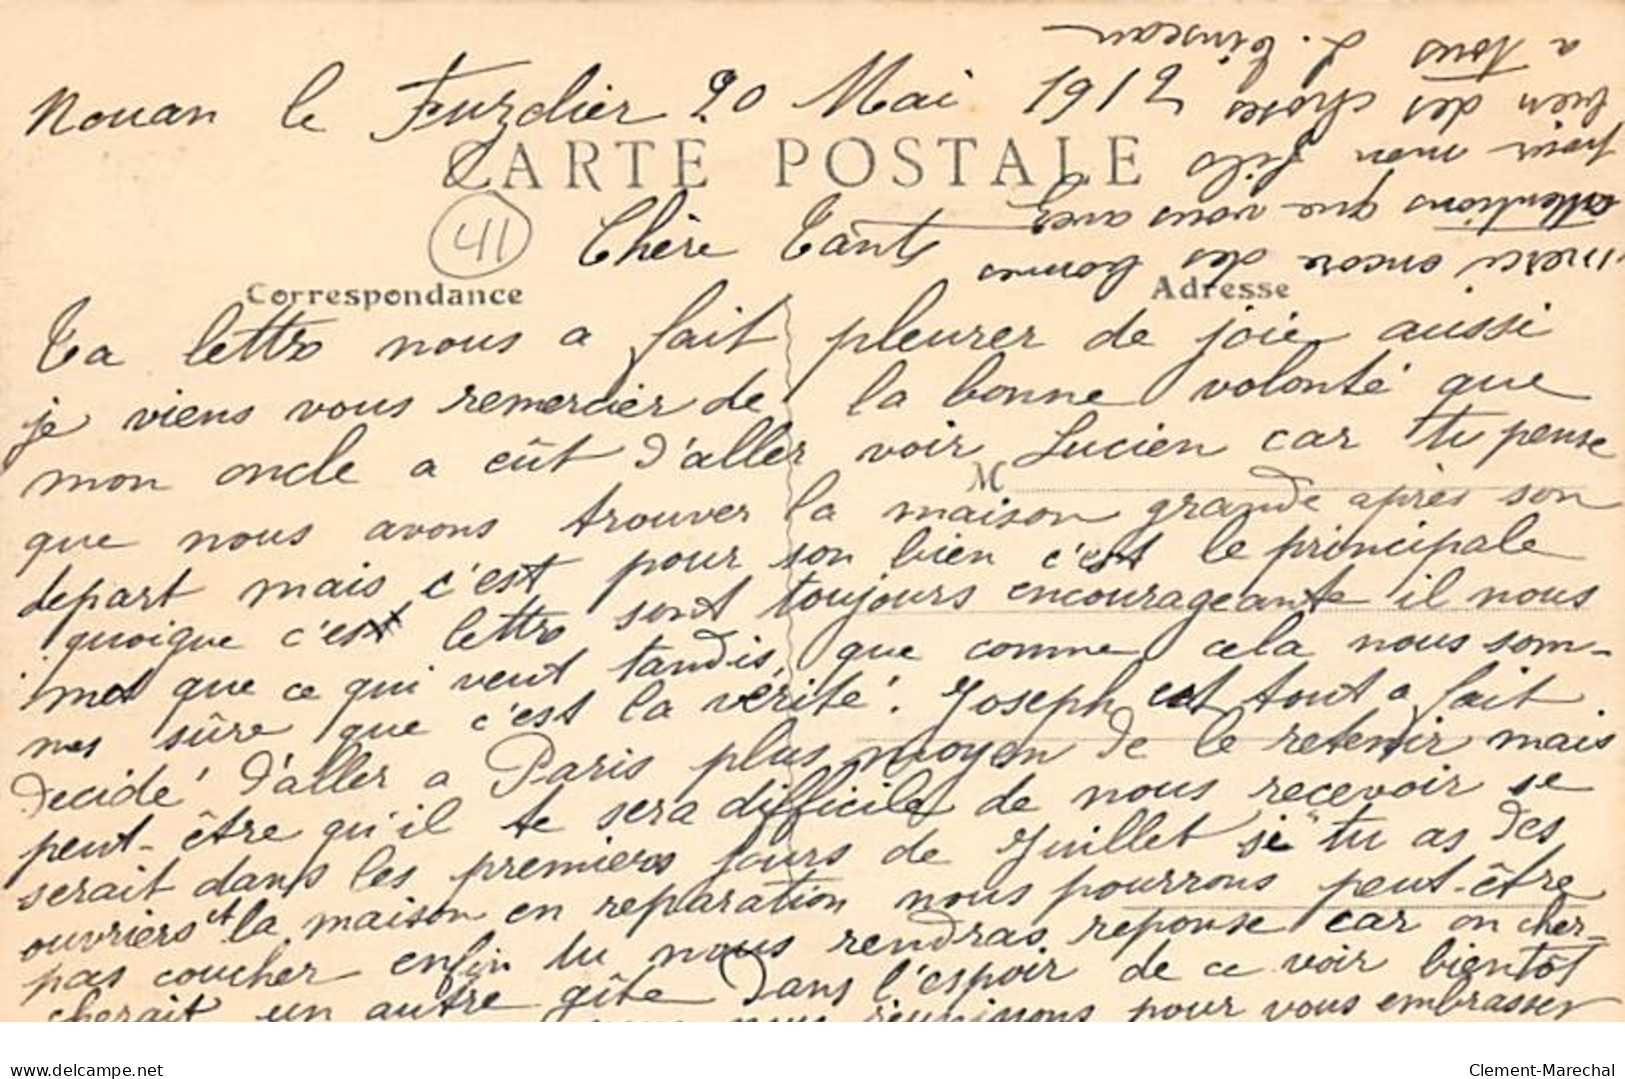 Nouan le Fuzelier 20 Mai 1912
CARTE POSTALE
41
Chère Tante
Correspondance
Adresse
Ta lettre nous a fait pleurer de joie aussi
je viens vous remercier de la bonne volonté que
mon oncle a eût d'aller voir Lucien car tu pense
M
que nous avons trouver la maison grande après son
depart mais c'est pour son bien c'est le principale
quoique c'est lettre sont toujours encourageante il nous
met que ce qui veut tandis que comme cela nous som-
mes sûre que c'est la vérité. Joseph est tout a fait
decidé d'aller a Paris plus moyen de le retenir mais
peut-être qu'il te sera difficile de nous recevoir se
serait dans les premiers jours de Juillet si tu as des
ouvriers et la maison en reparation nous pourrons peut-être
pas coucher enfin tu nous rendras reponse car on cher-
cherait un autre gîte Dans l'espoir de ce voir bientôt
nous réunissons pour vous embrasser
merci encore des bonnes
attentions que vous avez
pour mon fils
bien des choses
a tous L. Tinseau
www.delcampe.net
Clement-Marechal